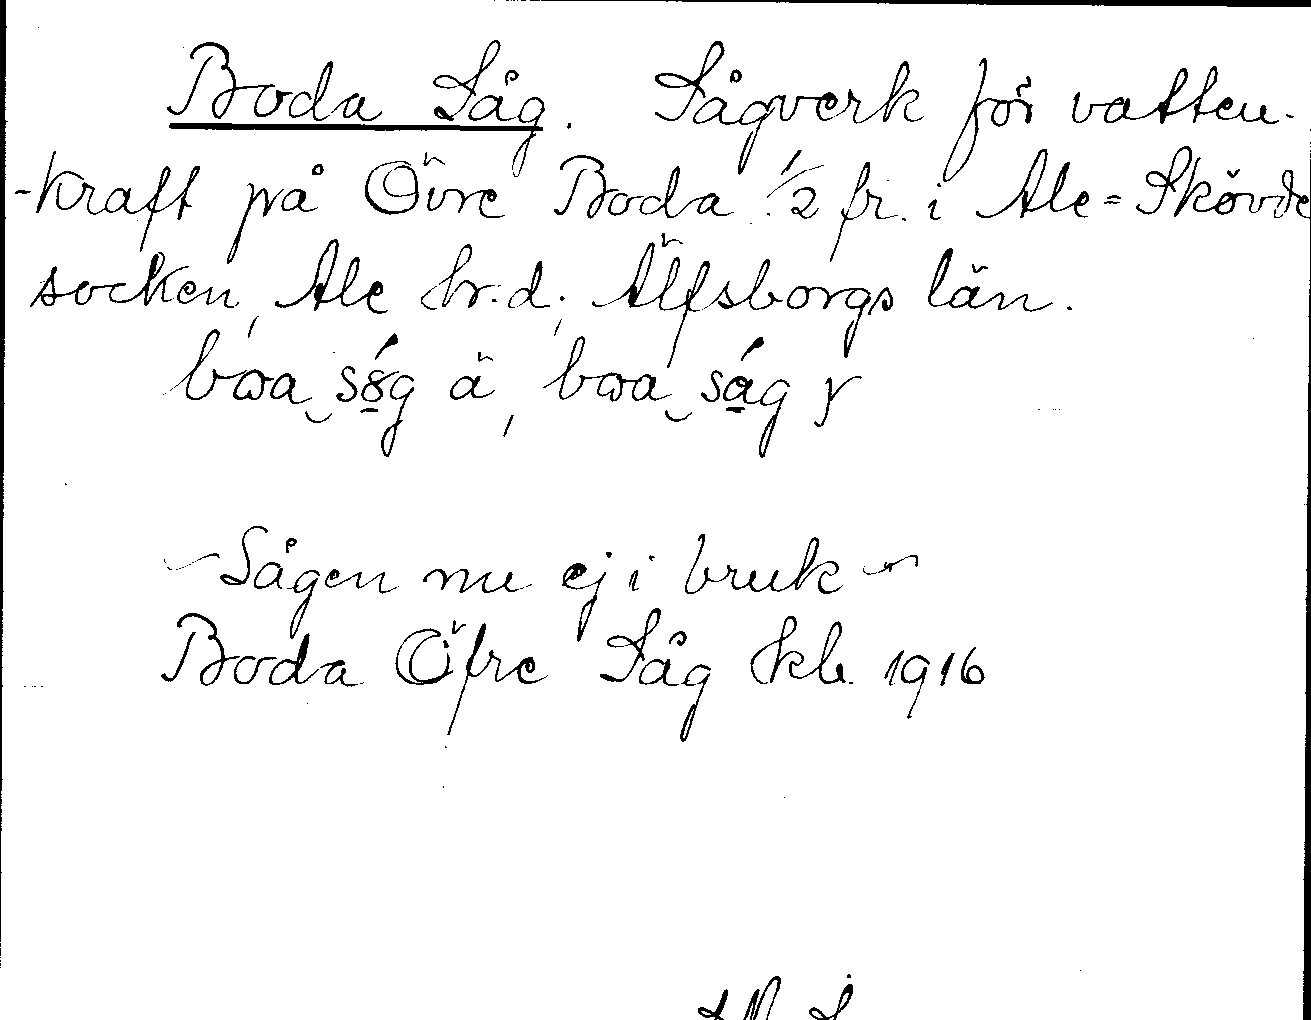 Boda Såg. Sågverk för vatten-
-kraft på Övre Boda 1/2 fr. i Ale=Skövde
socken, Ale hr.d., Älfsborgs län.
ä, y
Sågen nu ej i bruk
Boda Öfre Såg kb. 1916